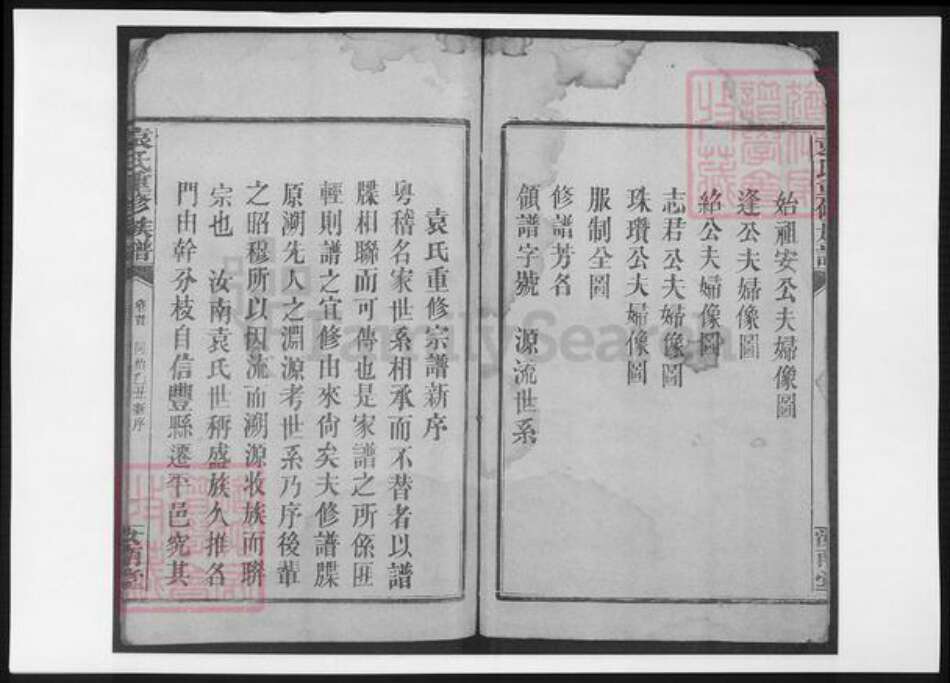 始祖安公夫婦像圖
逢公夫婦像圖
絡公夫婦像圖
志君公夫婦像圖
珠瓚公夫婦像圖
服制全圖
修譜芳名
領譜字號　源流世系
汝南堂
袁氏重修宗譜新序
粵稽名家世系相承而不替者以譜
牒相聯而可傳也是家譜之所係匪
輕則譜之宜修由來尙矣夫修譜牒
原溯先人之淵源考世系乃序後輩
之昭穆所以因流而溯源收族而聯
宗也　汝南袁氏世稱盛族久推名
門由幹分枝自信豐縣遷平邑究其
袁氏重修族譜
卷首
同治乙丑新序
汝南堂
FamilySearch